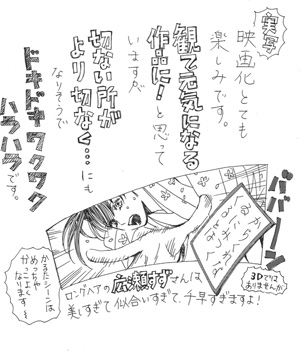 実写
映画化とても
楽しみです。
観て元気になる
作品に!と思って
いますが
切ない所が
より切なく…にも
なりそうで
ドキドキワクワク
ハラハラです。
ババーン
3Dではありませんが
かるたシーンは
めっちゃ
かっこよく
なります〜
ロングヘアの広瀬すずさんは
美しすぎて似合いすぎて、千早すぎますよ!